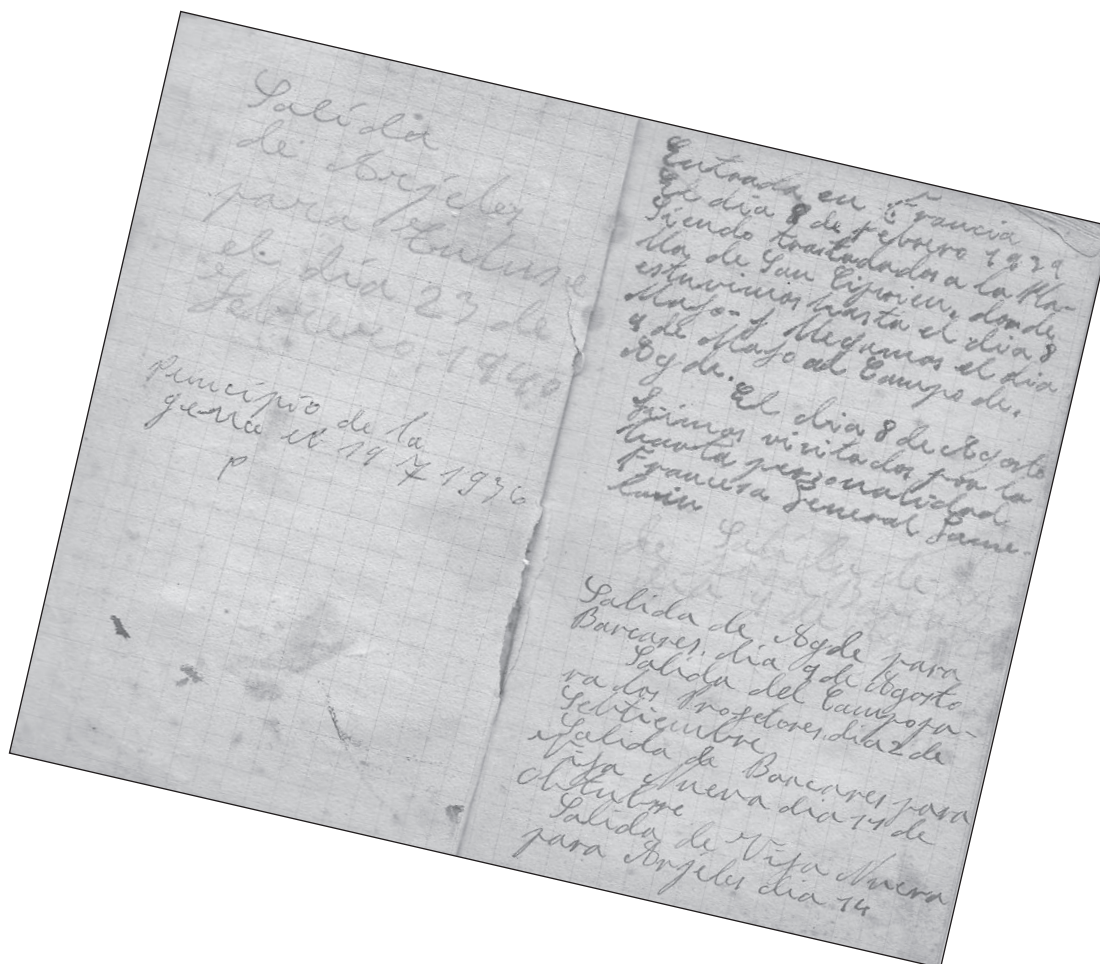 Salida
de Arjeles
para
el día 23 de
Febrero, 1940
Principio de la
gerra el 19 7 1936
P
Entrada en Francia
El dia 8 de febrero 1939
Siendo trasladados a la Pla-
lla de San Ciprien, donde
estuvimos hasta el dia 8
Mayo- y llegamos el dia
9 de Mayo al Campo de,
Agde. El dia 8 de Agosto
Fuimos visitados por la
haarta personalidad
Francesa General Game-
Salida de
Salida de Agde para
Barcares, dia 9 de Agosto
Salida del Campo pa-
ra los Projetores, dia 2 de
Septiembre
Salida de Barcares para
Vija Nueva dia 14 de
Obtubre
Salida de Vija Nueva
para Arjeles dia 14